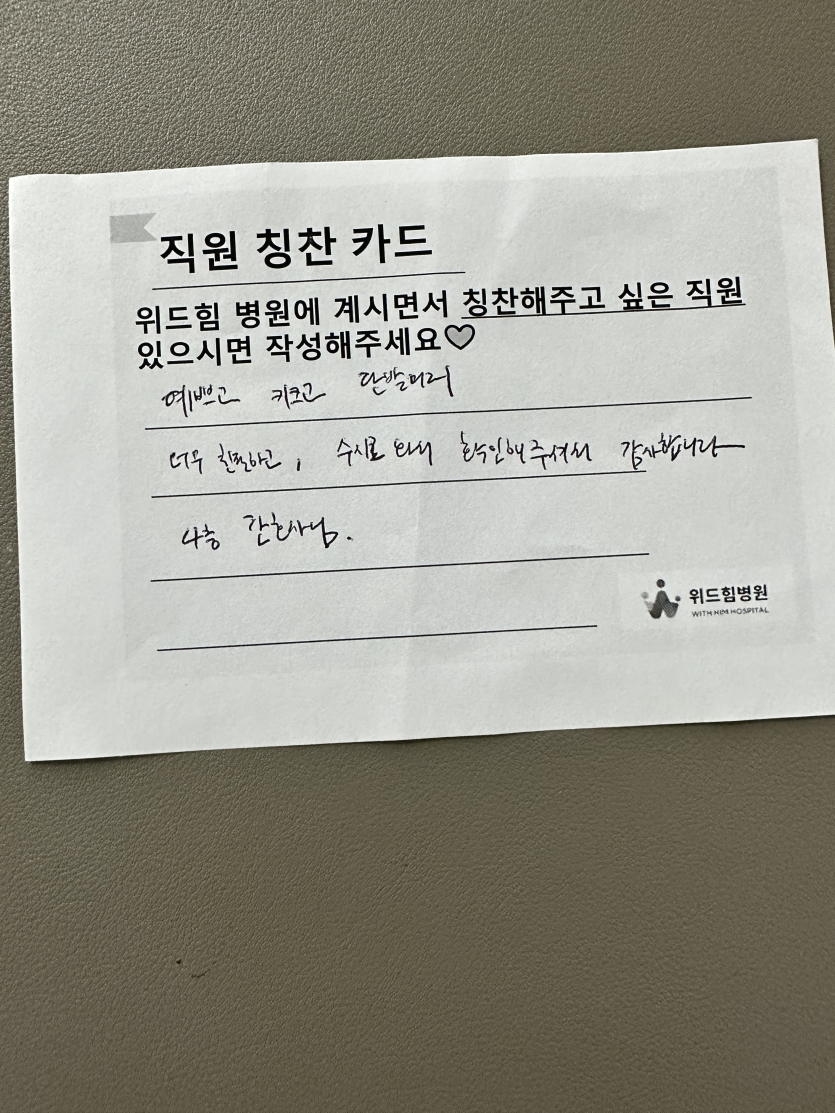 직원 칭찬 카드
위드힘 병원에 계시면서 칭찬해주고 싶은 직원
있으시면 작성해주세요♡
예쁘고 키크고 단발머리
너무 친절하고, 수시로 와서 확인해주셔서 감사합니다
4층 간호사님.
위드힘병원
WITH HIM HOSPITAL